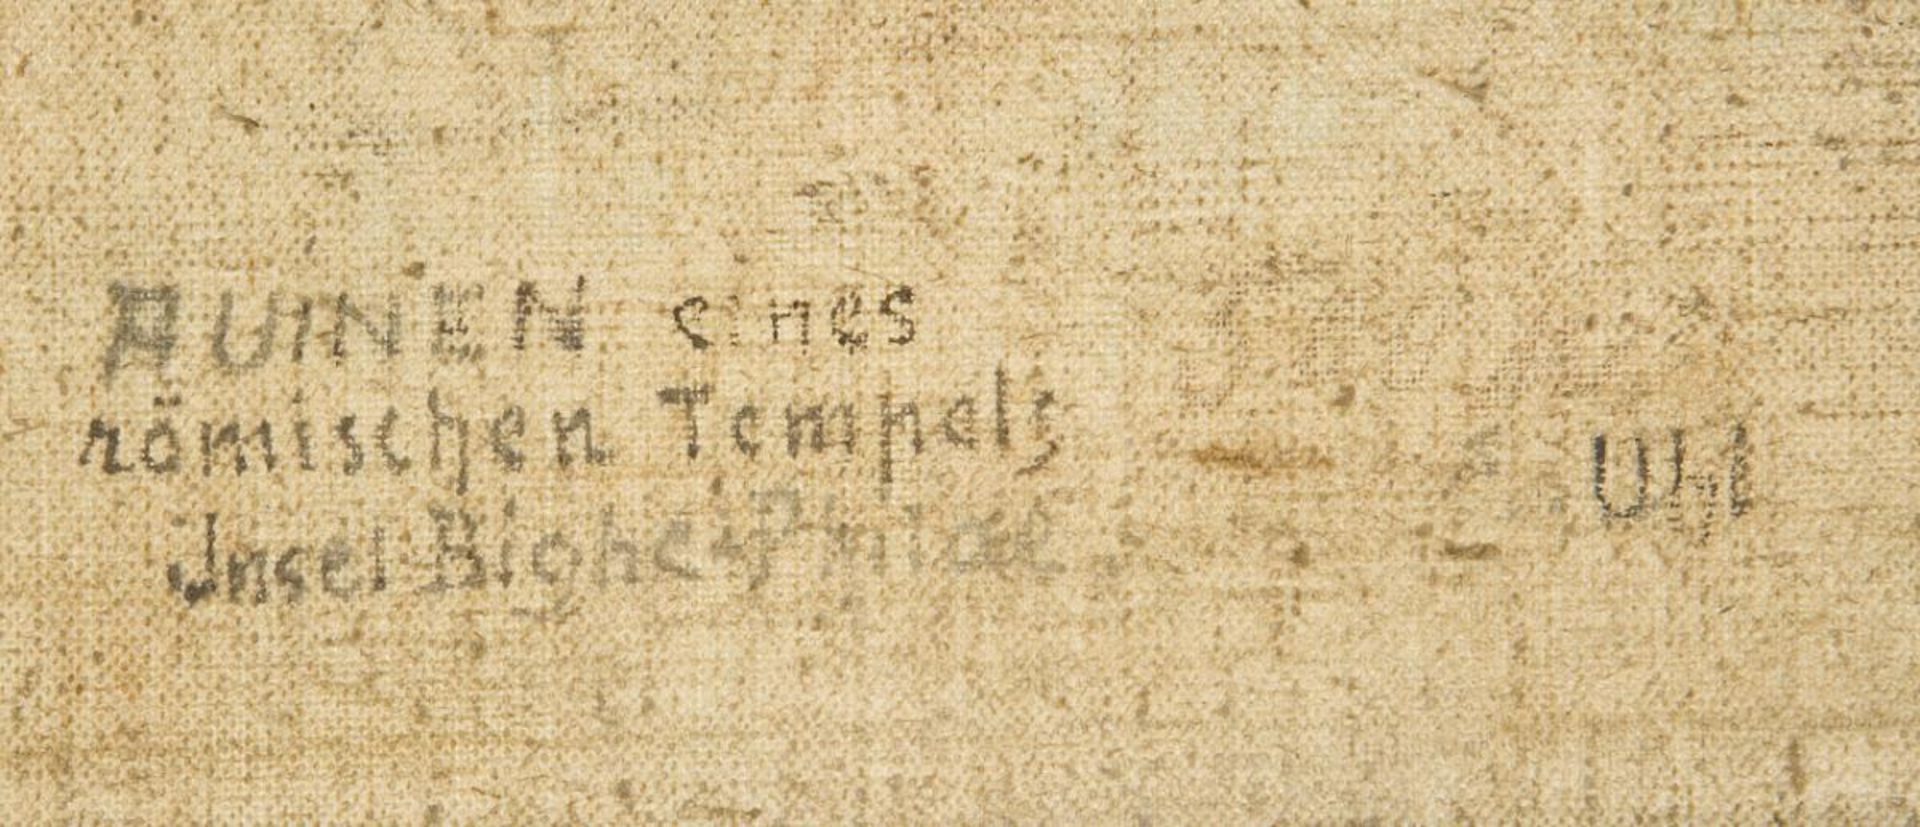 RUINEN eines
römischen Tempels
Jnsel Bighe-Philae
Uhl